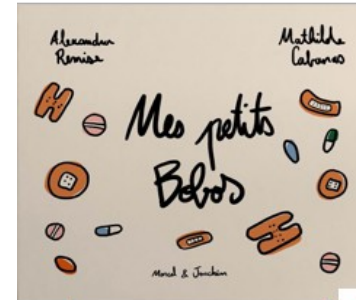 Alexandra
Remise
Mathilde
Cabanas
Mes petits
Bobos
Marcel & Joachim